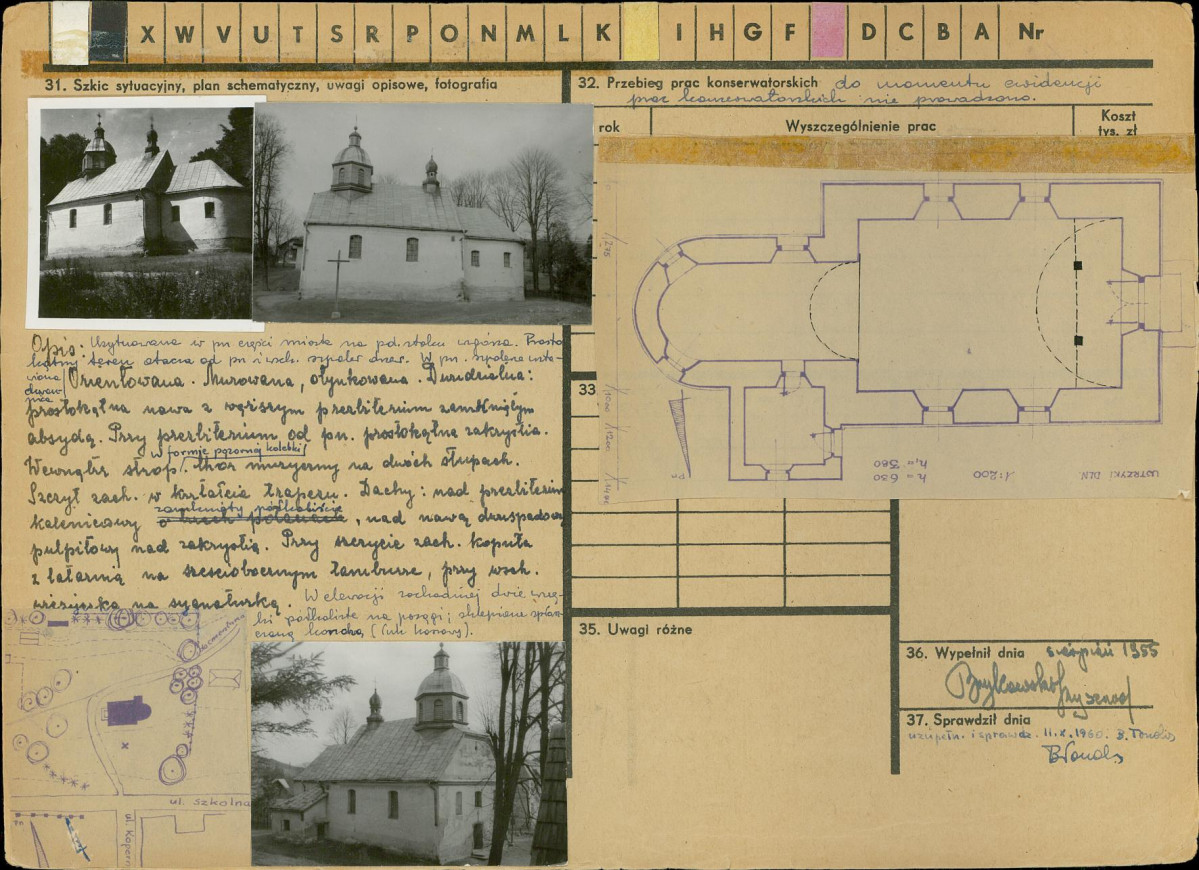 X W V U T S R P O N M L K I H G F D C B A Nr
31. Szkic sytuacyjny, plan schematyczny, uwagi opisowe, fotografia
32. Przebieg prac konserwatorskich do momentu ewidencji
prac konserwatorskich nie prowadzono.
rok
Wyszczególnienie prac
Koszt
tys. zł
Opis: Usytuowana w pn części miasta na pd. stoku wzgórza. Prosto
kątny teren otacza od pn i wsch. szpaler drzew. W pn.
Orientowana. Murowana, otynkowana. Dwudzielna:
prostokątna nawa z węższym prezbiterium zamkniętym
absydą. Przy prezbiterium od pn. prostokątna zakrystia.
w formie pozornej kolebki
Wewnątrz strop, chór muzyczny na dwóch słupach.
Szczyt zach. w kształcie trapezu. Dachy: nad prezbiterium
zamknięty półkoliście
kalenicowy o trzech połaciach, nad nawą dwuspadowy
pulpitowy nad zakrystią. Przy szczycie zach. kopuła
z latarnią na sześciobocznym tamburze, przy wsch.
wieżyczka na sygnaturkę. W elewacji zachodniej dwie wnę-
ki półkoliste na posągi; sklepione
konchą (łuk konowy).
33
h = 630
h₁ = 580
1:200
USTRZYKI DLN.
Pn
35. Uwagi różne
36. Wypełnił dnia sierpień 1955
Brykowski Ryszard
37. Sprawdził dnia
uzupełn. i sprawdz. 11.X.1960. B. Tondos
BTondos
ul. szkolna
ul. Kopern